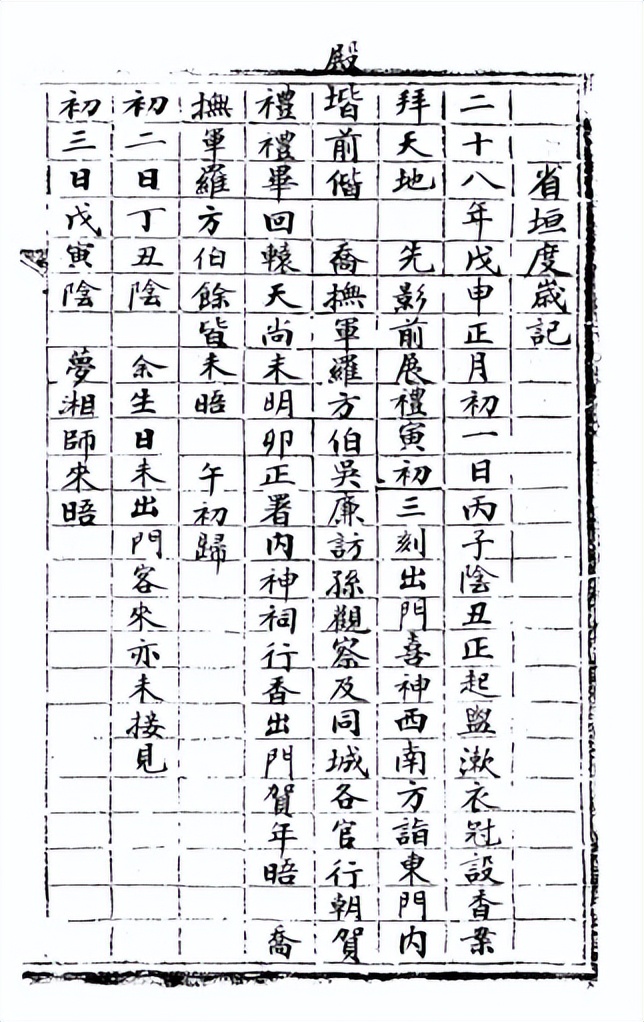 省垣度歲記
二十八年戊申正月初一日丙子陰丑正起盥漱衣冠設香案
拜天地 先影前展禮寅初三刻出門喜神西南方詣東門內
殿
堦前偕 喬撫軍羅方伯吳廉訪孫觀察及同城各官行朝賀
禮禮畢回轅天尚未明卯正署內神祠行香出門賀年晤 喬
撫軍羅方伯餘皆未晤 午初歸
初二日丁丑陰 余生日未出門客來亦未接見
初三日戊寅陰 夢湘師來晤